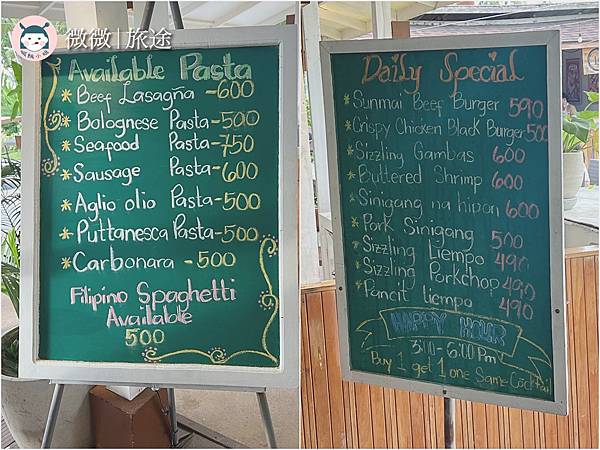 微微|旅途
Available Pasta
* Beef Lasagña - 600
* Bolognese Pasta - 500
* Seafood Pasta - 750
* Sausage Pasta - 600
* Aglio olio Pasta - 500
* Puttanesca Pasta - 500
* Carbonara - 500
Filipino Spaghetti
Available
500
Daily Special
* Sunmai Beef Burger 590
* Crispy Chicken Black Burger 500
* Sizzling Gambas 600
* Buttered Shrimp 600
* Sinigang na hipon 600
* Pork Sinigang 500
* Sizzling Liempo 490
* Sizzling Porkchop 490
* Pancit liempo 490
HAPPY HOUR
3:00 - 6:00 Pm
Buy 1 get 1 one Same Cocktail